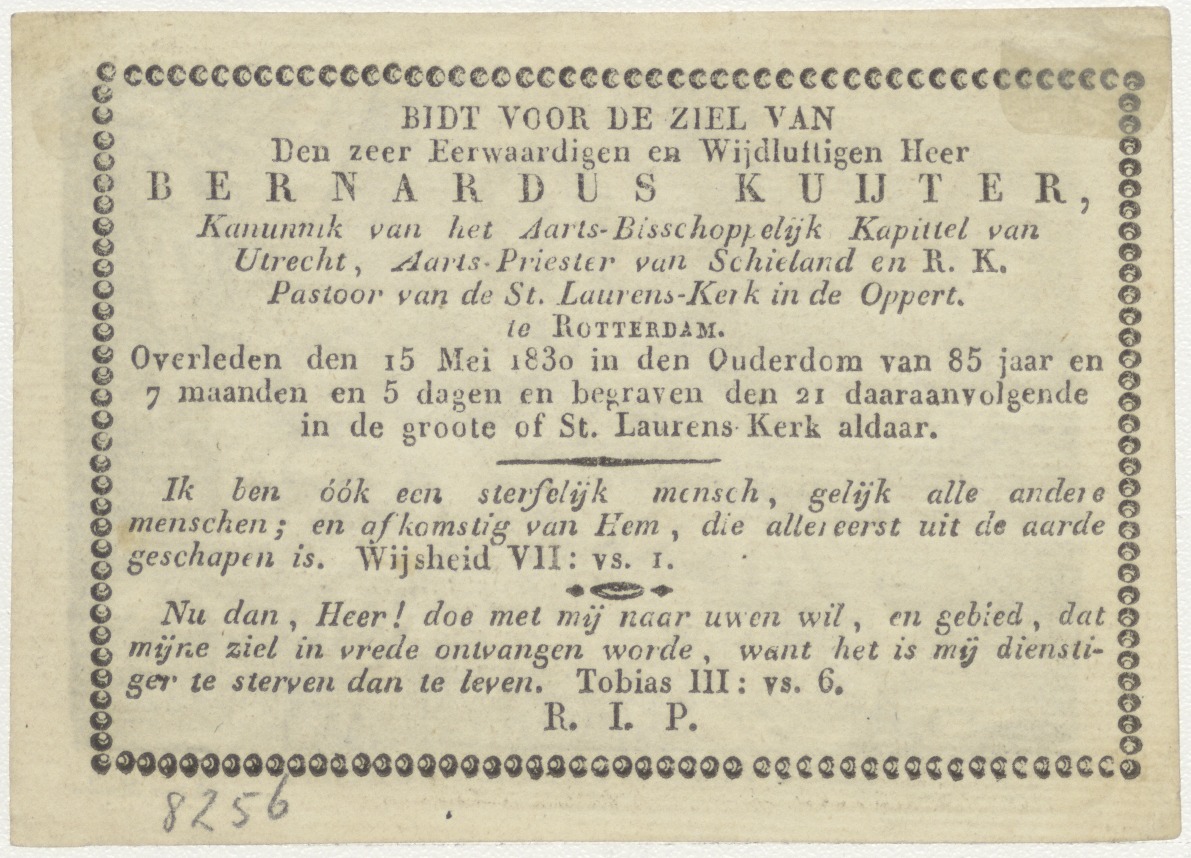 BIDT VOOR DE ZIEL VAN
Den zeer Eerwaardigen en Wijdluftigen Heer
BERNARDUS KUIJTER,
Kanunnik van het Aarts-Bisschoppelijk Kapittel van
Utrecht, Aarts-Priester van Schieland en R. K.
Pastoor van de St. Laurens-Kerk in de Oppert.
te ROTTERDAM.
Overleden den 15 Mei 1830 in den Ouderdom van 85 jaar en
7 maanden en 5 dagen en begraven den 21 daaraanvolgende
in de groote of St. Laurens-Kerk aldaar.
Ik ben óók een sterfelijk mensch, gelijk alle andere
menschen; en afkomstig van Hem, die allereerst uit de aarde
geschapen is. Wijsheid VII: vs. 1.
Nu dan, Heer! doe met mij naar uwen wil, en gebied, dat
mijne ziel in vrede ontvangen worde, want het is mij diensti-
ger te sterven dan te leven. Tobias III: vs. 6.
R. I. P.
8256